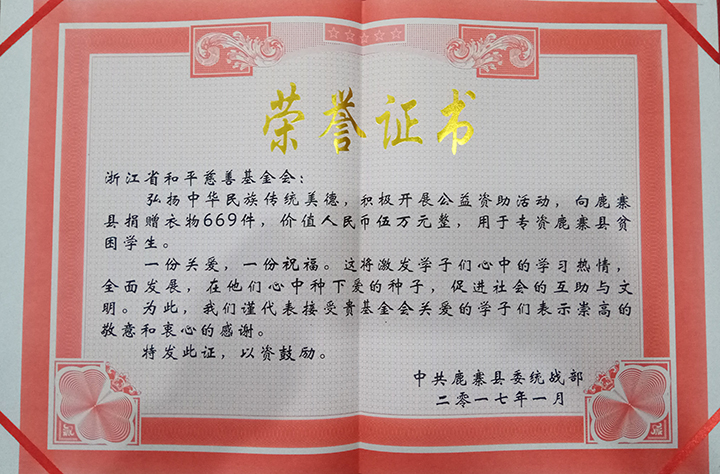 荣誉证书
浙江省和平慈善基金会：
弘扬中华民族传统美德，积极开展公益资助活动，向鹿寨
县捐赠衣物669件，价值人民币伍万元整，用于专资鹿寨县贫
困学生。
一份关爱，一份祝福。这将激发学子们心中的学习热情，
全面发展，在他们心中种下爱的种子，促进社会的互助与文
明。为此，我们谨代表接受贵基金会关爱的学子们表示崇高的
敬意和衷心的感谢。
特发此证，以资鼓励。
中共鹿寨县委统战部
二零一七年一月